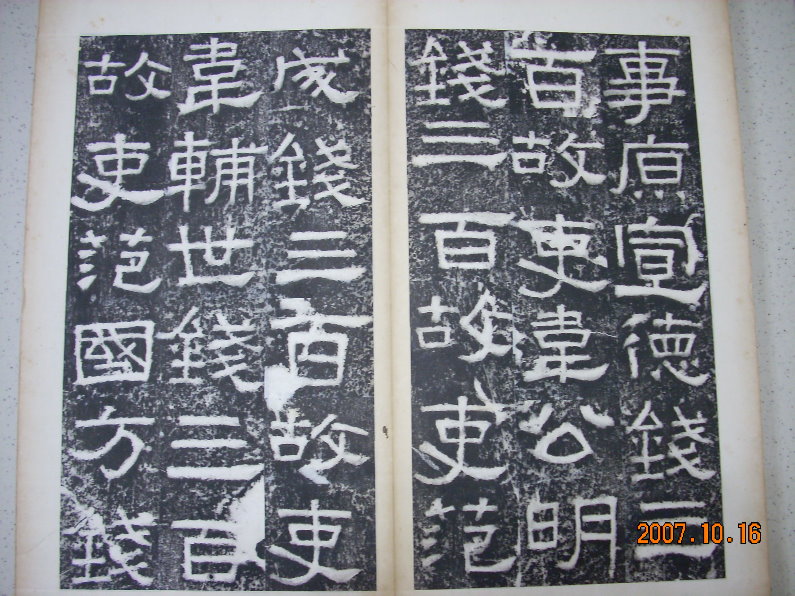 事原宣德錢三
百故吏韋公明
錢三百故吏范
成錢三百故吏
韋輔世錢三百
故吏范國方錢
2007.10.16